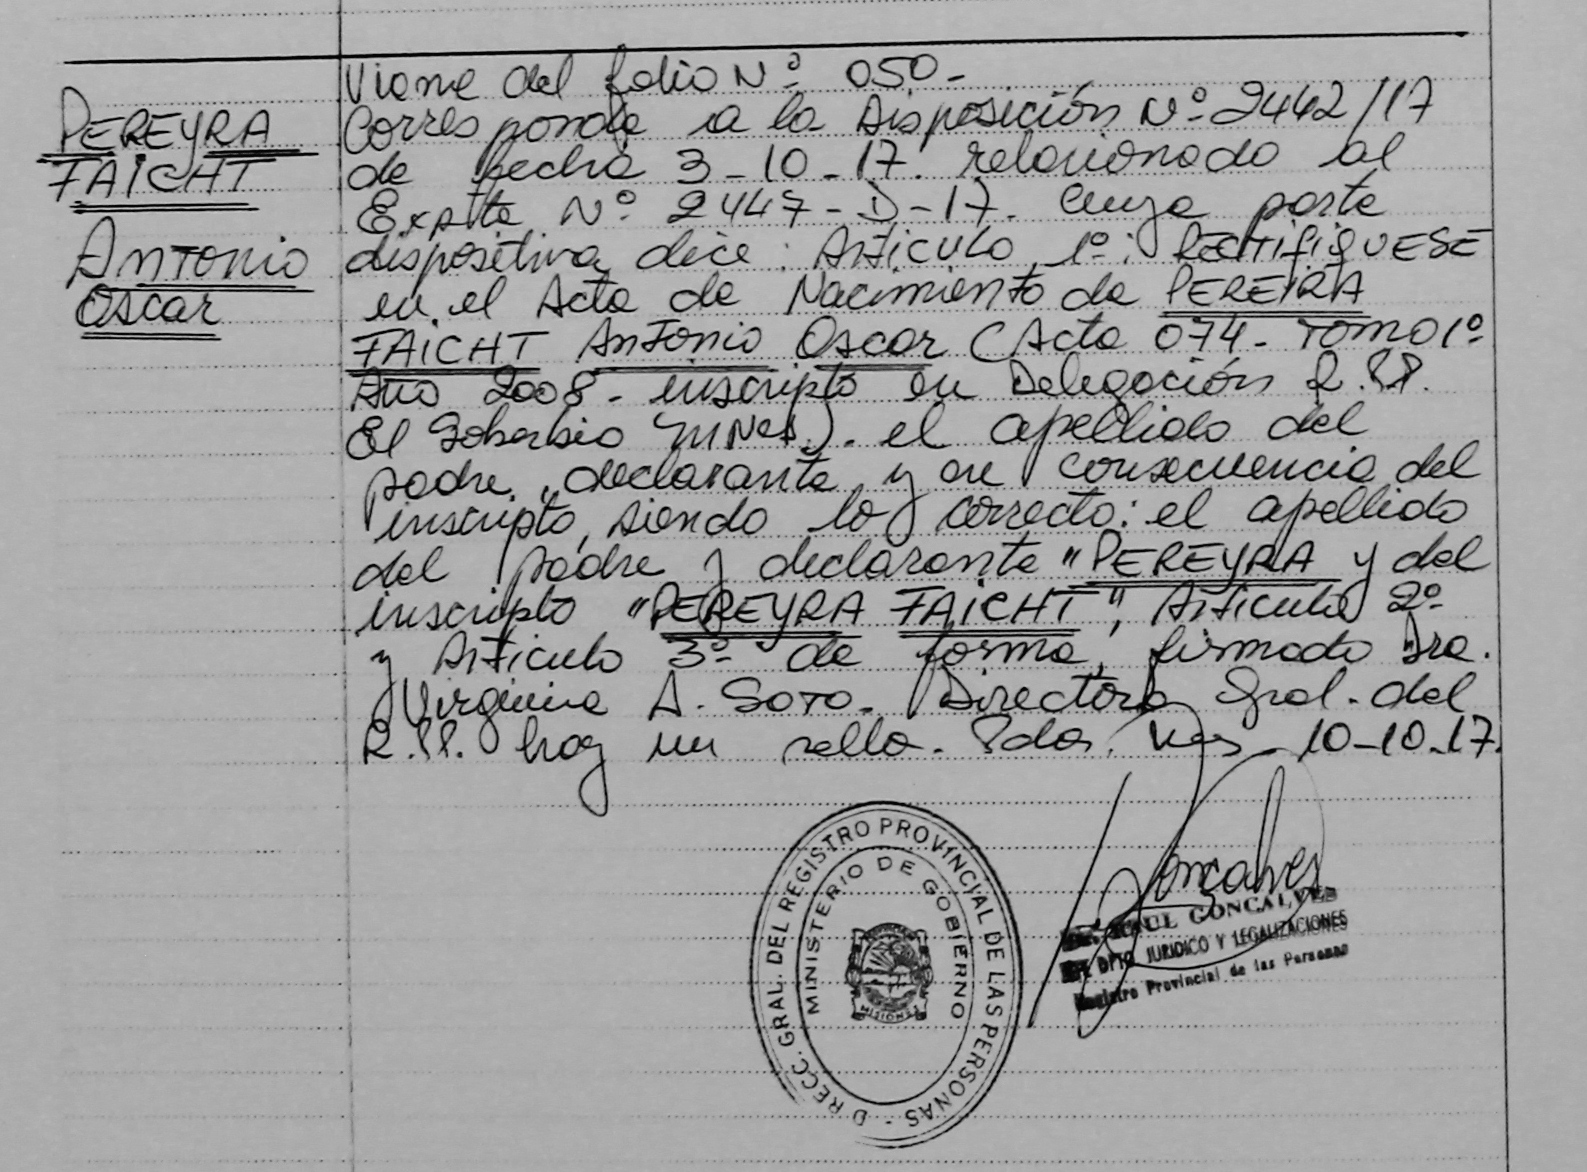 PEREYRA
FAICHT
Antonio
Oscar
Viene del folio Nº 050-
Corresponde a la Disposición Nº 2442/17
de fecha 3-10-17. relacionado al
Expte Nº 2447-D-17. cuya parte
dispositiva dice: Articulo 1º: RECTIFIQUESE
en el Acta de Nacimiento de PEREIRA
FAICHT Antonio Oscar (Acta 074- Tomo 1º
Año 2008- inscripto en Delegación R.PP.
El Soberbio Mnes). el apellido del
padre, declarante y en consecuencia del
inscripto, siendo lo correcto: el apellido
del padre y declarante "PEREYRA y del
inscripto "PEREYRA FAICHT", Articulo 2º
y Articulo 3º de forma, firmado Dra.
Virginia A. Soto. Directora Gral. del
R.PP. hay un sello. Pdas. Mnes. 10-10.17.
DIRECC. GRAL. DEL REGISTRO PROVINCIAL DE LAS PERSONAS -
MINISTERIO DE GOBIERNO
MISIONES
Goncalves
RAUL GONCALVES
DPTO. JURIDICO Y LEGALIZACIONES
Registro Provincial de las Personas